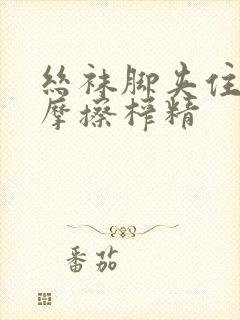 丝袜脚夹住
摩擦榨精
番茄